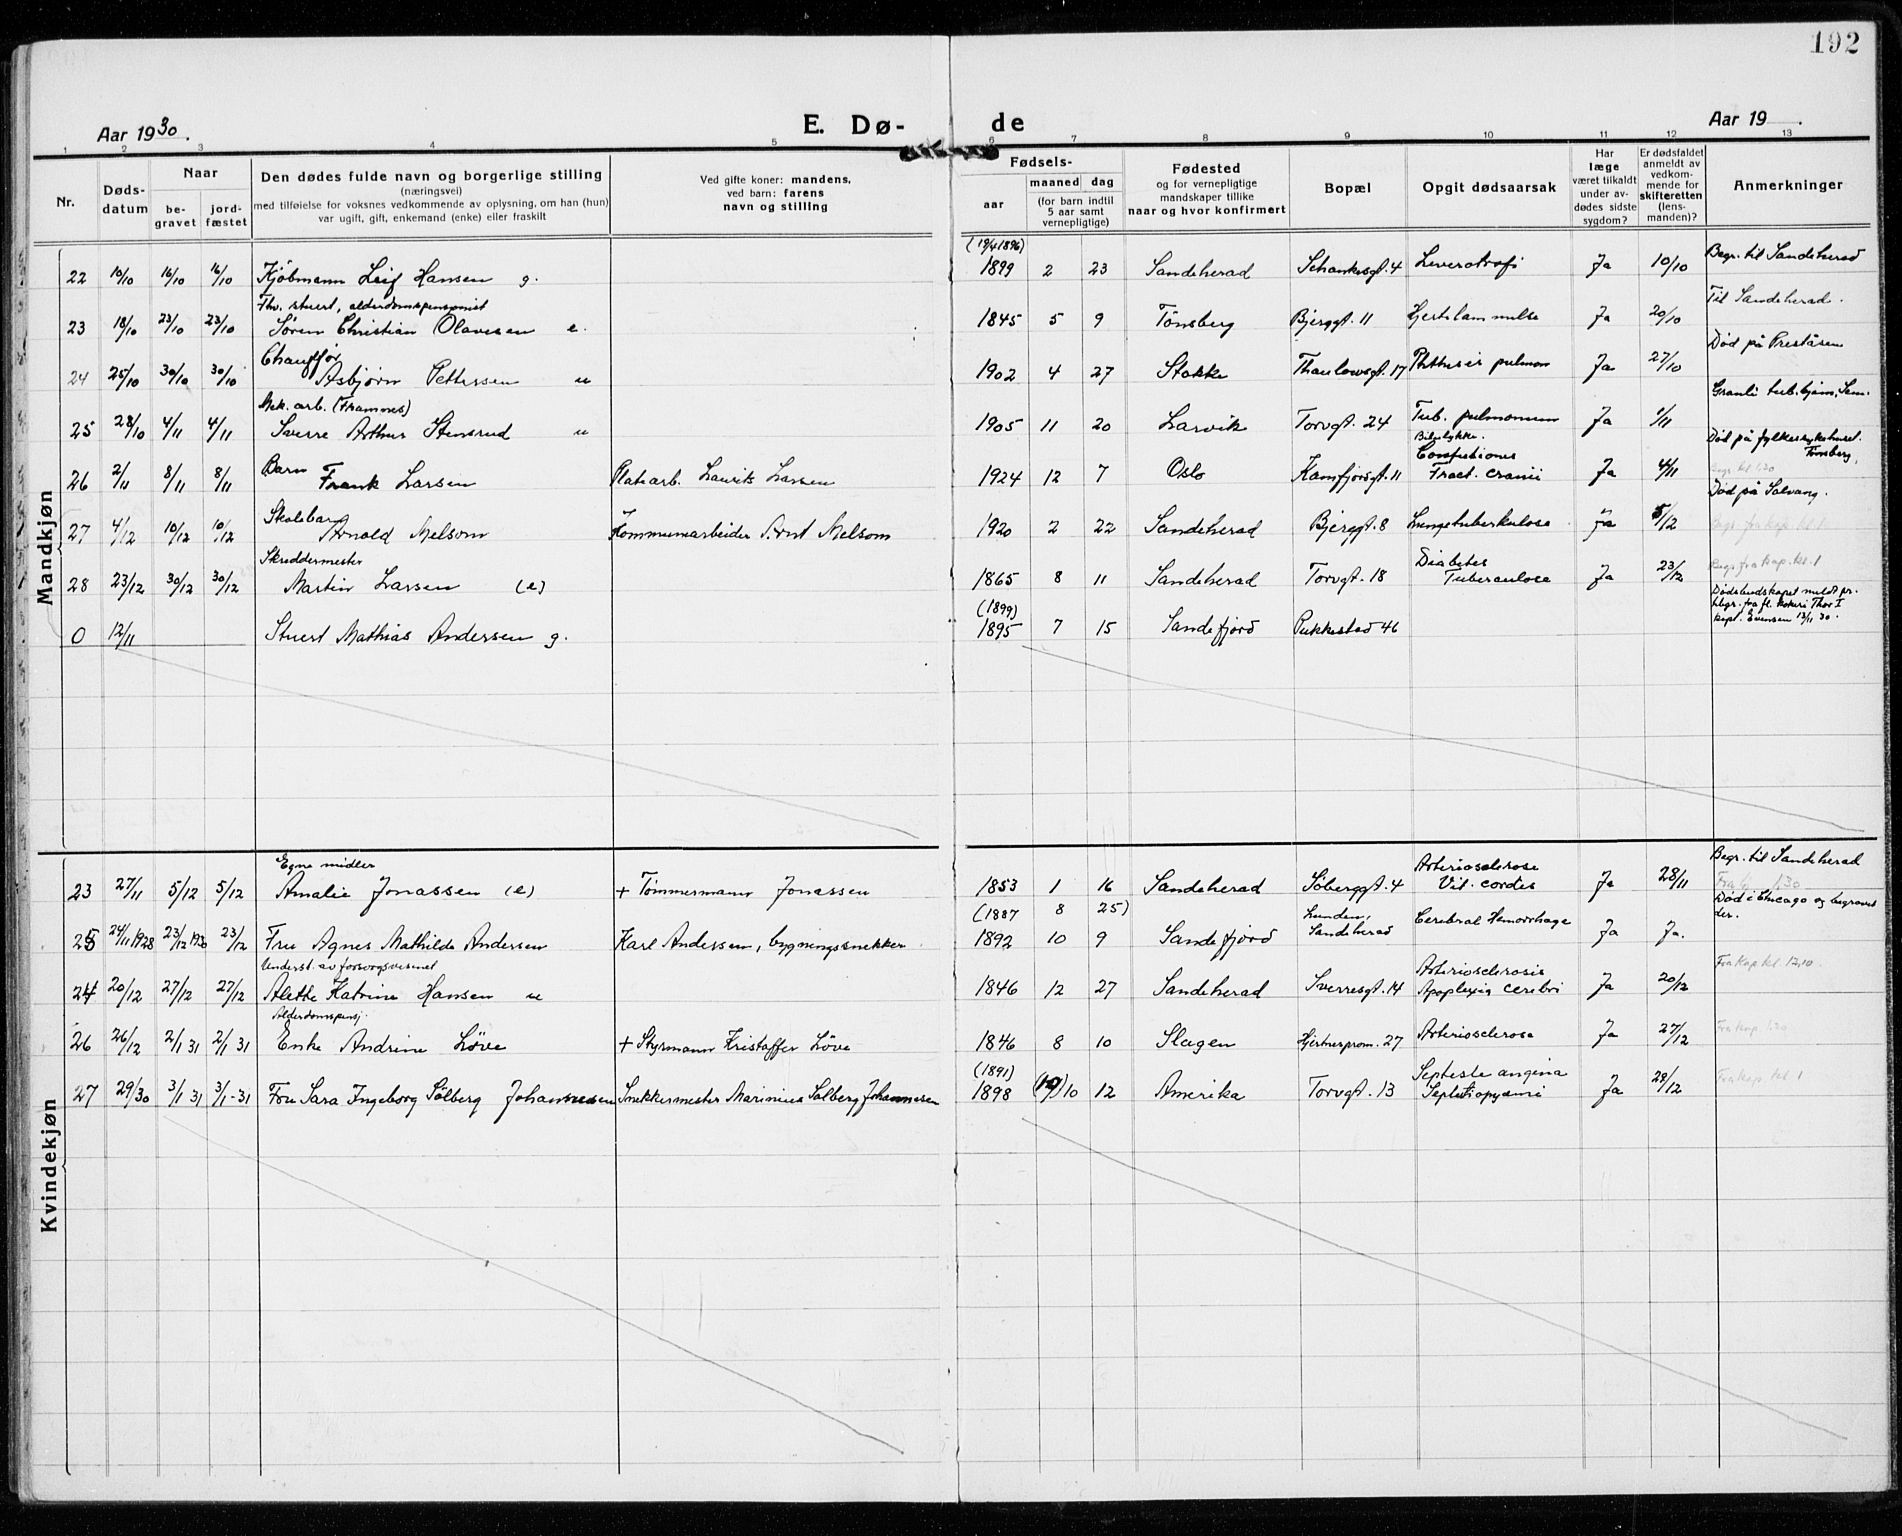 192
Aar 1930.
E. Dø-
de
Aar 19 .
1 2 3 4 5 6 7 8 9 10 11 12 13
Nr.
Døds-
datum
Naar
be-
gravet
jord-
fæstet
Den dødes fulde navn og borgerlige stilling
(næringsvei)
med tilføielse for voksnes vedkommende av oplysning, om han (hun)
var ugift, gift, enkemand (enke) eller fraskilt
Ved gifte koner: mandens,
ved barn: farens
navn og stilling
Fødsels-
aar
maaned dag
(for barn indtil
5 aar samt
vernepligtige)
Fødested
og for vernepligtige
mandskaper tillike
naar og hvor konfirmert
Bopæl
Opgit dødsaarsak
Har
læge
været tilkaldt
under av-
dødes sidste
sygdom?
Er dødsfaldet
anmeldt av
vedkom-
mende for
skifteretten
(lens-
manden)?
Anmerkninger
Mandkjøn
(19/4 1896)
22 10/10 16/10 16/10 Kjøbmann Leif Hansen g. 1899 2 23 Sandeherad Schankesgt. 4 Leveratrofi Ja 10/10 Begr. til Sandeherad
Fhv. stuert, alderdomspensionist
23 18/10 23/10 23/10 Søren Christian Olavesen e. 1845 5 9 Tønsberg Bjerggt. 11 Hjertelammelse Ja 20/10 Til Sandeherad.
Chauffør
24 25/10 30/10 30/10 Asbjørn Pettersen u 1902 4 27 Stokke Thaulowsgt. 17 Phthisis pulmon Ja 27/10 Død på Preståsen
Mek. arb. (Framnes)
25 28/10 4/11 4/11 Sverre Arthur Stensrud u 1905 11 20 Larvik Torvgt. 24 Tub. pulmonum Ja 1/11 Granli tub.hjem, Sem.
Bilulykke.
26 2/11 8/11 8/11 Barn Frank Larsen Platearb. Laurits Larsen 1924 12 7 Oslo Kamfjordgt. 11 Contutiones Fract. cranii Ja 4/11 Død på fylkessykehuset. Tønsberg,
Begr. kl. 1.30
Skolebarn
27 4/12 10/12 10/12 Arnold Melsom Kommunearbeider Arnt Melsom 1920 2 22 Sandeherad Bjerggt. 8 Lungetuberkulose Ja 5/12 Død på Solvang.
Begr. fra kap. kl. 1
Skreddermester
28 23/12 30/12 30/12 Martin Larsen (e) 1865 8 11 Sandeherad Torvgt. 18 Diabetes Tuberculose Ja 23/12 Begr. fra Kap. kl. 1
(1899)
0 12/11 Stuert Mathias Andersen g. 1895 7 15 Sandefjord Pukkestad 46 Dødsbudskapet meldt pr.
tlegr. fra fl. kokeri Thor I
kapt. Evensen 12/11 30.
Kvindekjøn
Egne midler
23 27/11 5/12 5/12 Amalie Jonassen (e) + Tømmermann Jonassen 1853 1 16 Sandeherad Søberggt. 4 Arteriosclerose Vit. cordis Ja 28/11 Begr. til Sandeherad
(1887 8 25)
25 24/11 1928 23/12 1930 23/12 Fru Agnes Mathilde Andersen Karl Andersen, bygningssnekker 1892 10 9 Sandefjord Lunden, Sandeherad Cerebral Hemorrhage Ja Ja. Død i Chicago og begravet
der.
Underst. av forsorgsvesenet
24 20/12 27/12 27/12 Alette Katrine Hansen u 1846 12 27 Sandeherad Sverresgt. 14 Arteriosclerosis Apoplexia cerebri Ja 20/12 Fra Kap kl. 12,10
Alderdomspensj.
26 26/12 2/1 31 2/1 31 Enke Andrine Løve + Styrmann Kristoffer Løve 1846 8 10 Slagen Hjertnesprom. 27 Arteriosclerose Ja 27/12 Fra Kap. 1.30
(1891)
27 29/30 3/1 31 3/1-31 Fru Sara Ingeborg Sølberg Johannessen Snekkermester Marinius Solberg Johannesen 1898 (10) 10 12 Amerika Torvgt. 13 Septiske angina Septikopyæmi Ja 29/12 Fra Kap. kl. 1